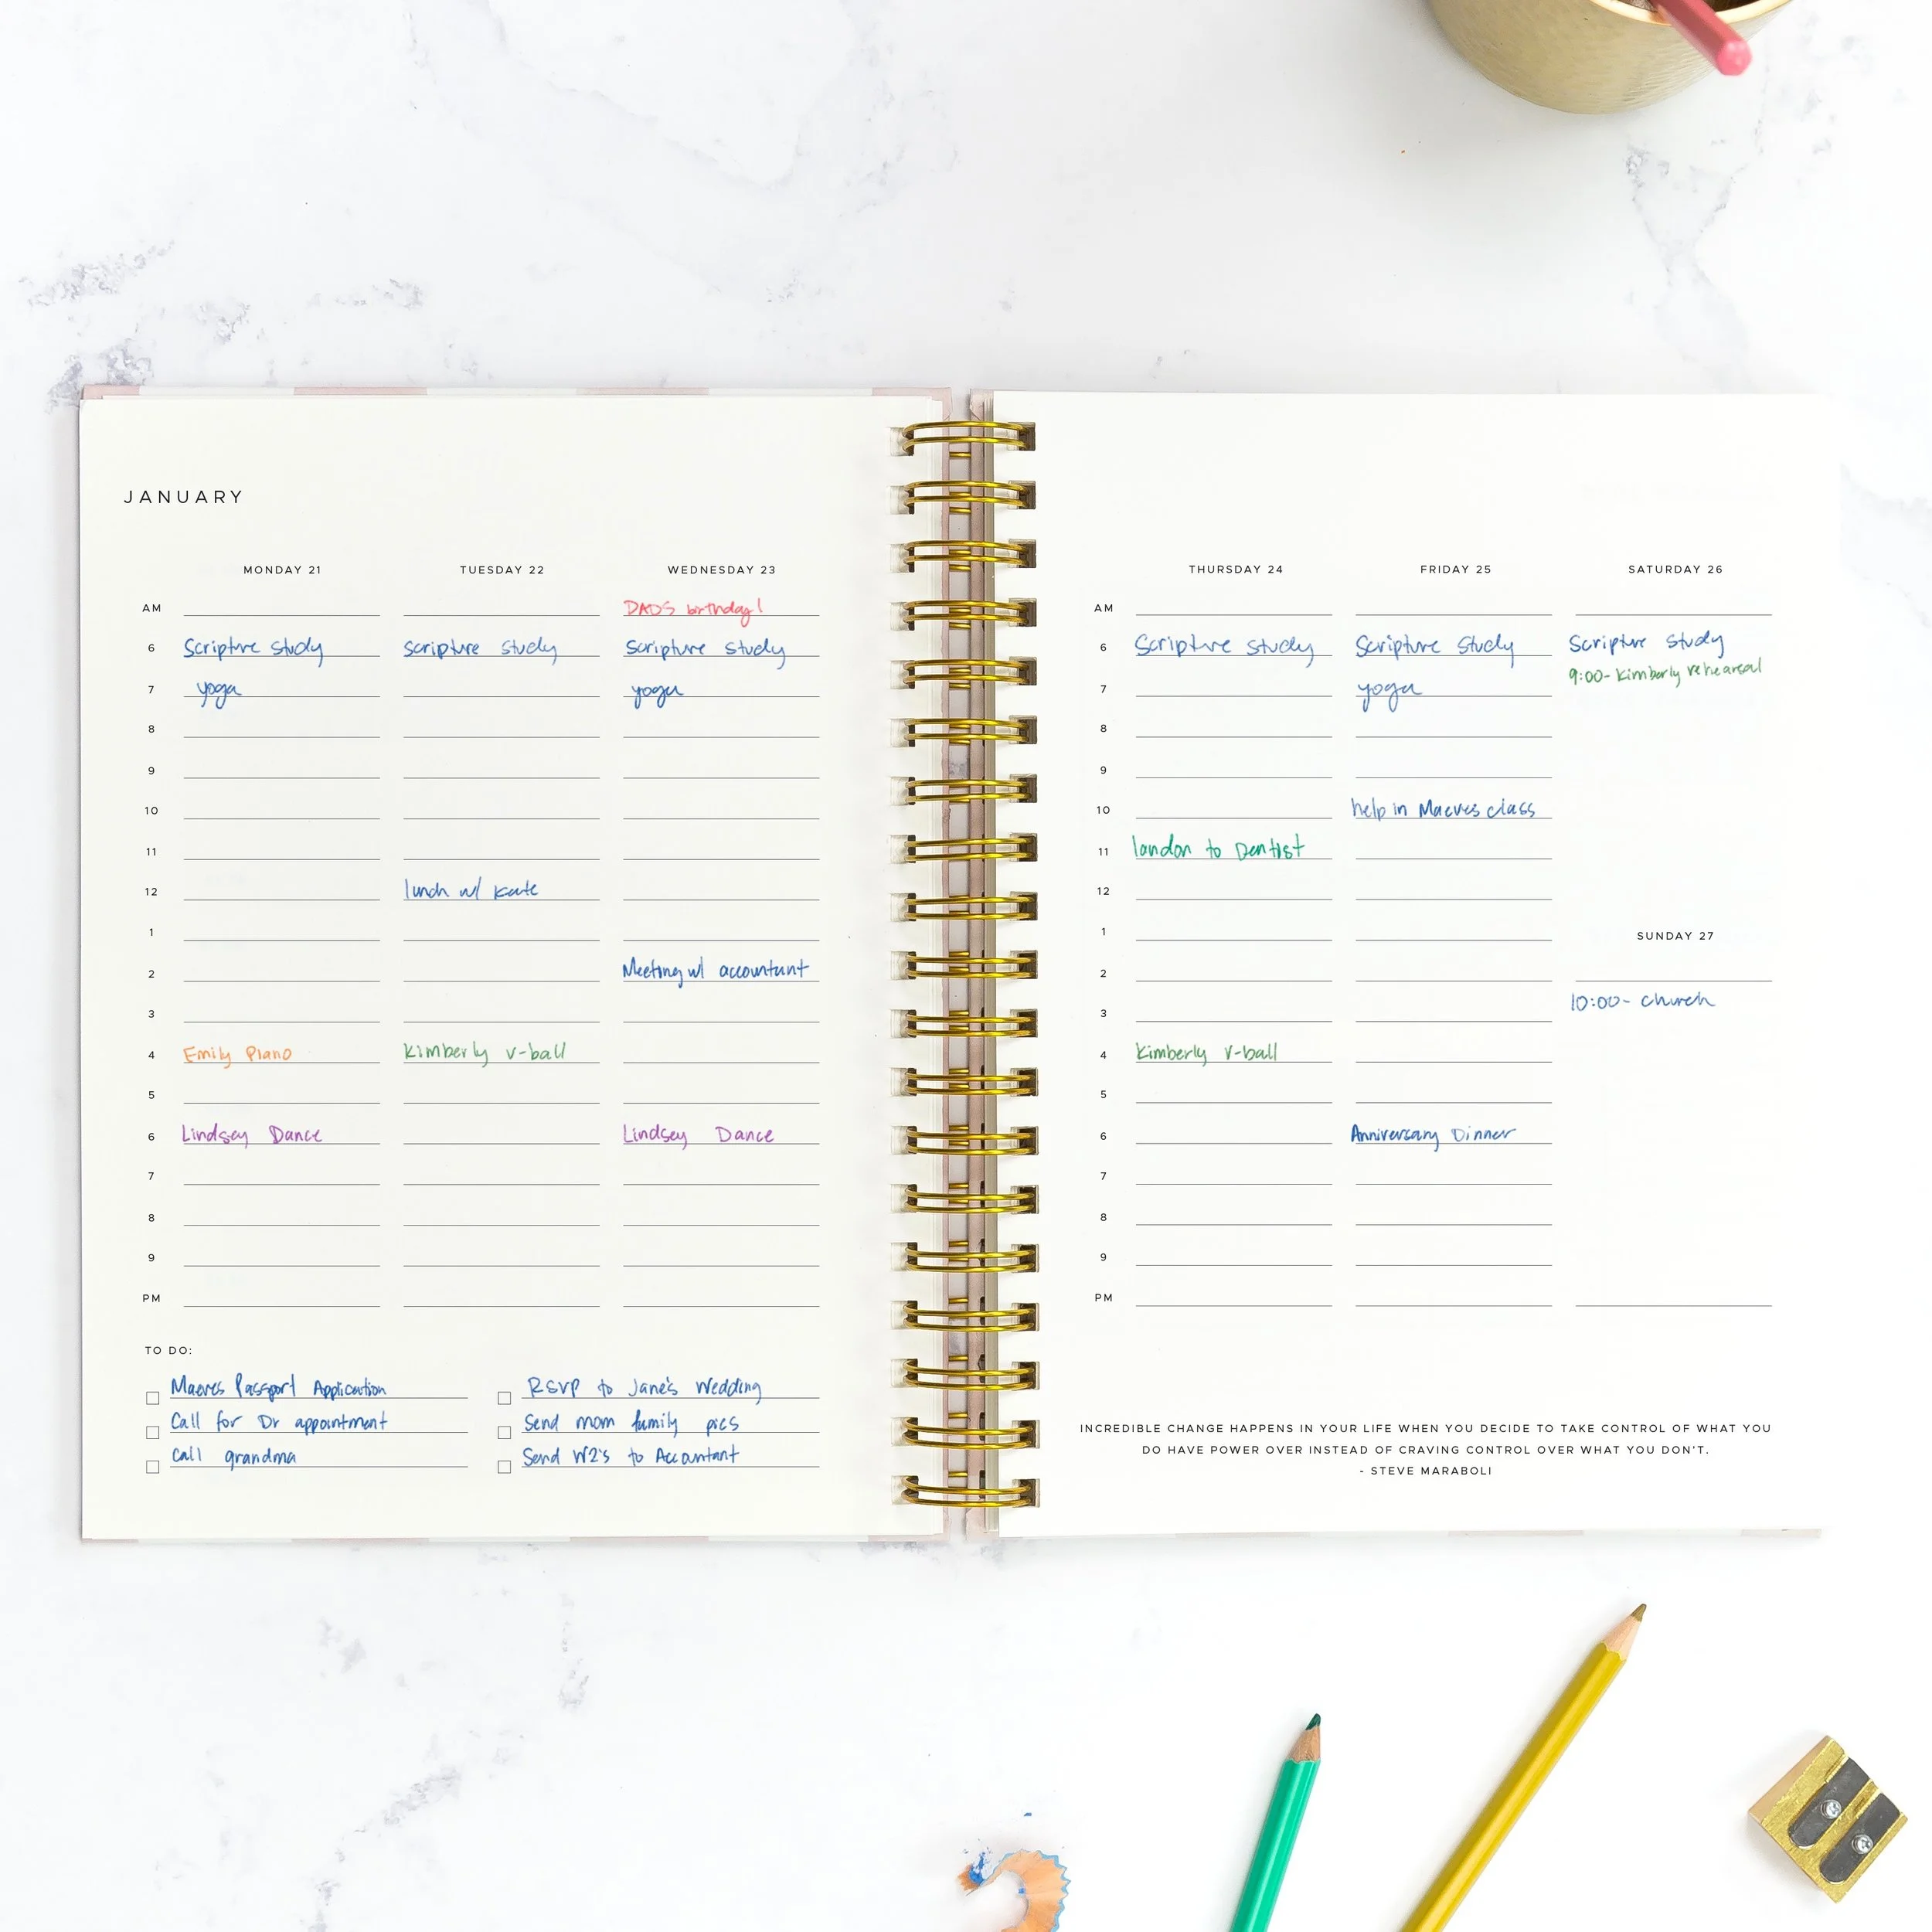 JANUARY
MONDAY 21
TUESDAY 22
WEDNESDAY 23
AM
DADS birthday!
6
Scripture Study
Scripture Study
Scripture Study
7
yoga
yoga
8
9
10
11
12
lunch w/ Kate
1
2
Meeting w/ accountant
3
4
Emily Piano
Kimberly v-ball
5
6
Lindsey Dance
Lindsey Dance
7
8
9
PM
TO DO:
Maeves Passport Application
Call for Dr appointment
Call grandma
RSVP to Jane's Wedding
Send mom family pics
Send W2's to Accountant
THURSDAY 24
FRIDAY 25
SATURDAY 26
AM
6
Scripture Study
Scripture Study
Scripture Study
9:00- Kimberly rehearsal
7
yoga
8
9
10
help in Maeves class
11
london to Dentist
12
1
SUNDAY 27
2
10:00- church
3
4
Kimberly v-ball
5
6
Anniversary Dinner
7
8
9
PM
INCREDIBLE CHANGE HAPPENS IN YOUR LIFE WHEN YOU DECIDE TO TAKE CONTROL OF WHAT YOU
DO HAVE POWER OVER INSTEAD OF CRAVING CONTROL OVER WHAT YOU DON'T.
- STEVE MARABOLI